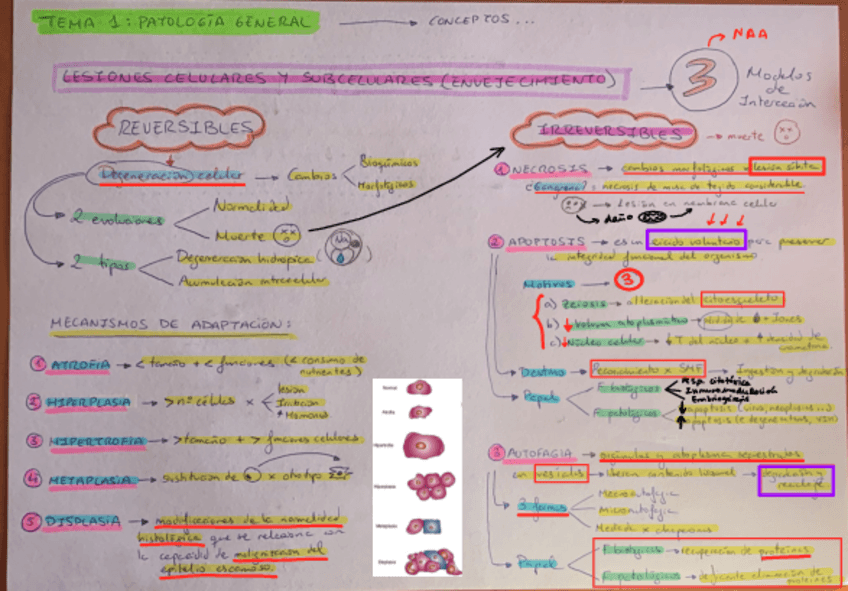 TEMA 1: PATOLOGÍA GENERAL → CONCEPTOS...
LESIONES CELULARES Y SUBCELULARES (ENVEJECIMIENTO) → 3
NAA
Modelos de
REVERSIBLES
Degeneración celular → Cambios
Bioquímicos
Morfológicos
2 evoluciones
Normalidad
Muerte
2 tipos
Degeneración hidrópica (
Na
)
Acumulación intracelular
MECANISMOS DE ADAPTACIÓN:
1 ATROFIA → < tamaño + < funciones (< consumo de
nutrientes)
2 HIPERPLASIA → > nº células x
lesión
Irritación
Hormonas
3 HIPERTROFIA → > tamaño + > funciones celulares
4 METAPLASIA → sustitucion de x otro tipo
5 DISPLASIA → modificaciones de la normalidad
histológica que se relaciona con
la capacidad de malignización del
epitelio escamoso.
Normal
Atrofia
Hipertrofia
Hiperplasia
Metaplasia
Displasia
IRREVERSIBLES → muerte
1 NECROSIS → cambios morfológicos x lesión súbita
(Gangrena): necrosis de masa de tejido considerable
→ lesión en membrana celular
→ daño
2 APOPTOSIS → es un suicidio voluntario para preservar
la integridad funcional del organismo
Motivos 3
a) Zeiosis → alteración del citoesqueleto
b) ↓ Volumen citoplasmático → pérdida de + Iones
c) ↓ Núcleo celular → ↓ T del núcleo + ↑ densidad de
cromatina
Destino → Reconocimiento x SMF → Ingestión y degradación
Papel
F. biológicos
Resp. citotóxica
Inmunomodulación
Embriogénesis
F. patológicos
↓ apoptosis (virus, neoplasias...)
↑ apoptosis (e degenerativas, VIH)
3 AUTOFAGIA → orgánulos y citoplasma secuestrados
en vesículas → liberan contenido lisosomal → degradación y
reciclaje
3 formas
Macroautofagia
Microautofagia
Mediada x chaperonas
Papel
F. biológicos → recuperación de proteínas
F. patológicos → deficiente eliminación de
proteínas